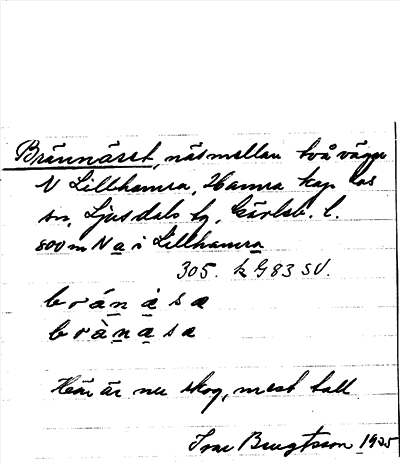 Brännäset, näs mellan två vägar
N Lillhamra, Hamra kap
sn, Ljusdals tg, Gävleb. l.
800 m N a i Lillhamra
305. k G83 SV.
Här är nu skog, mest tall
Ivar Bengtsson 1935